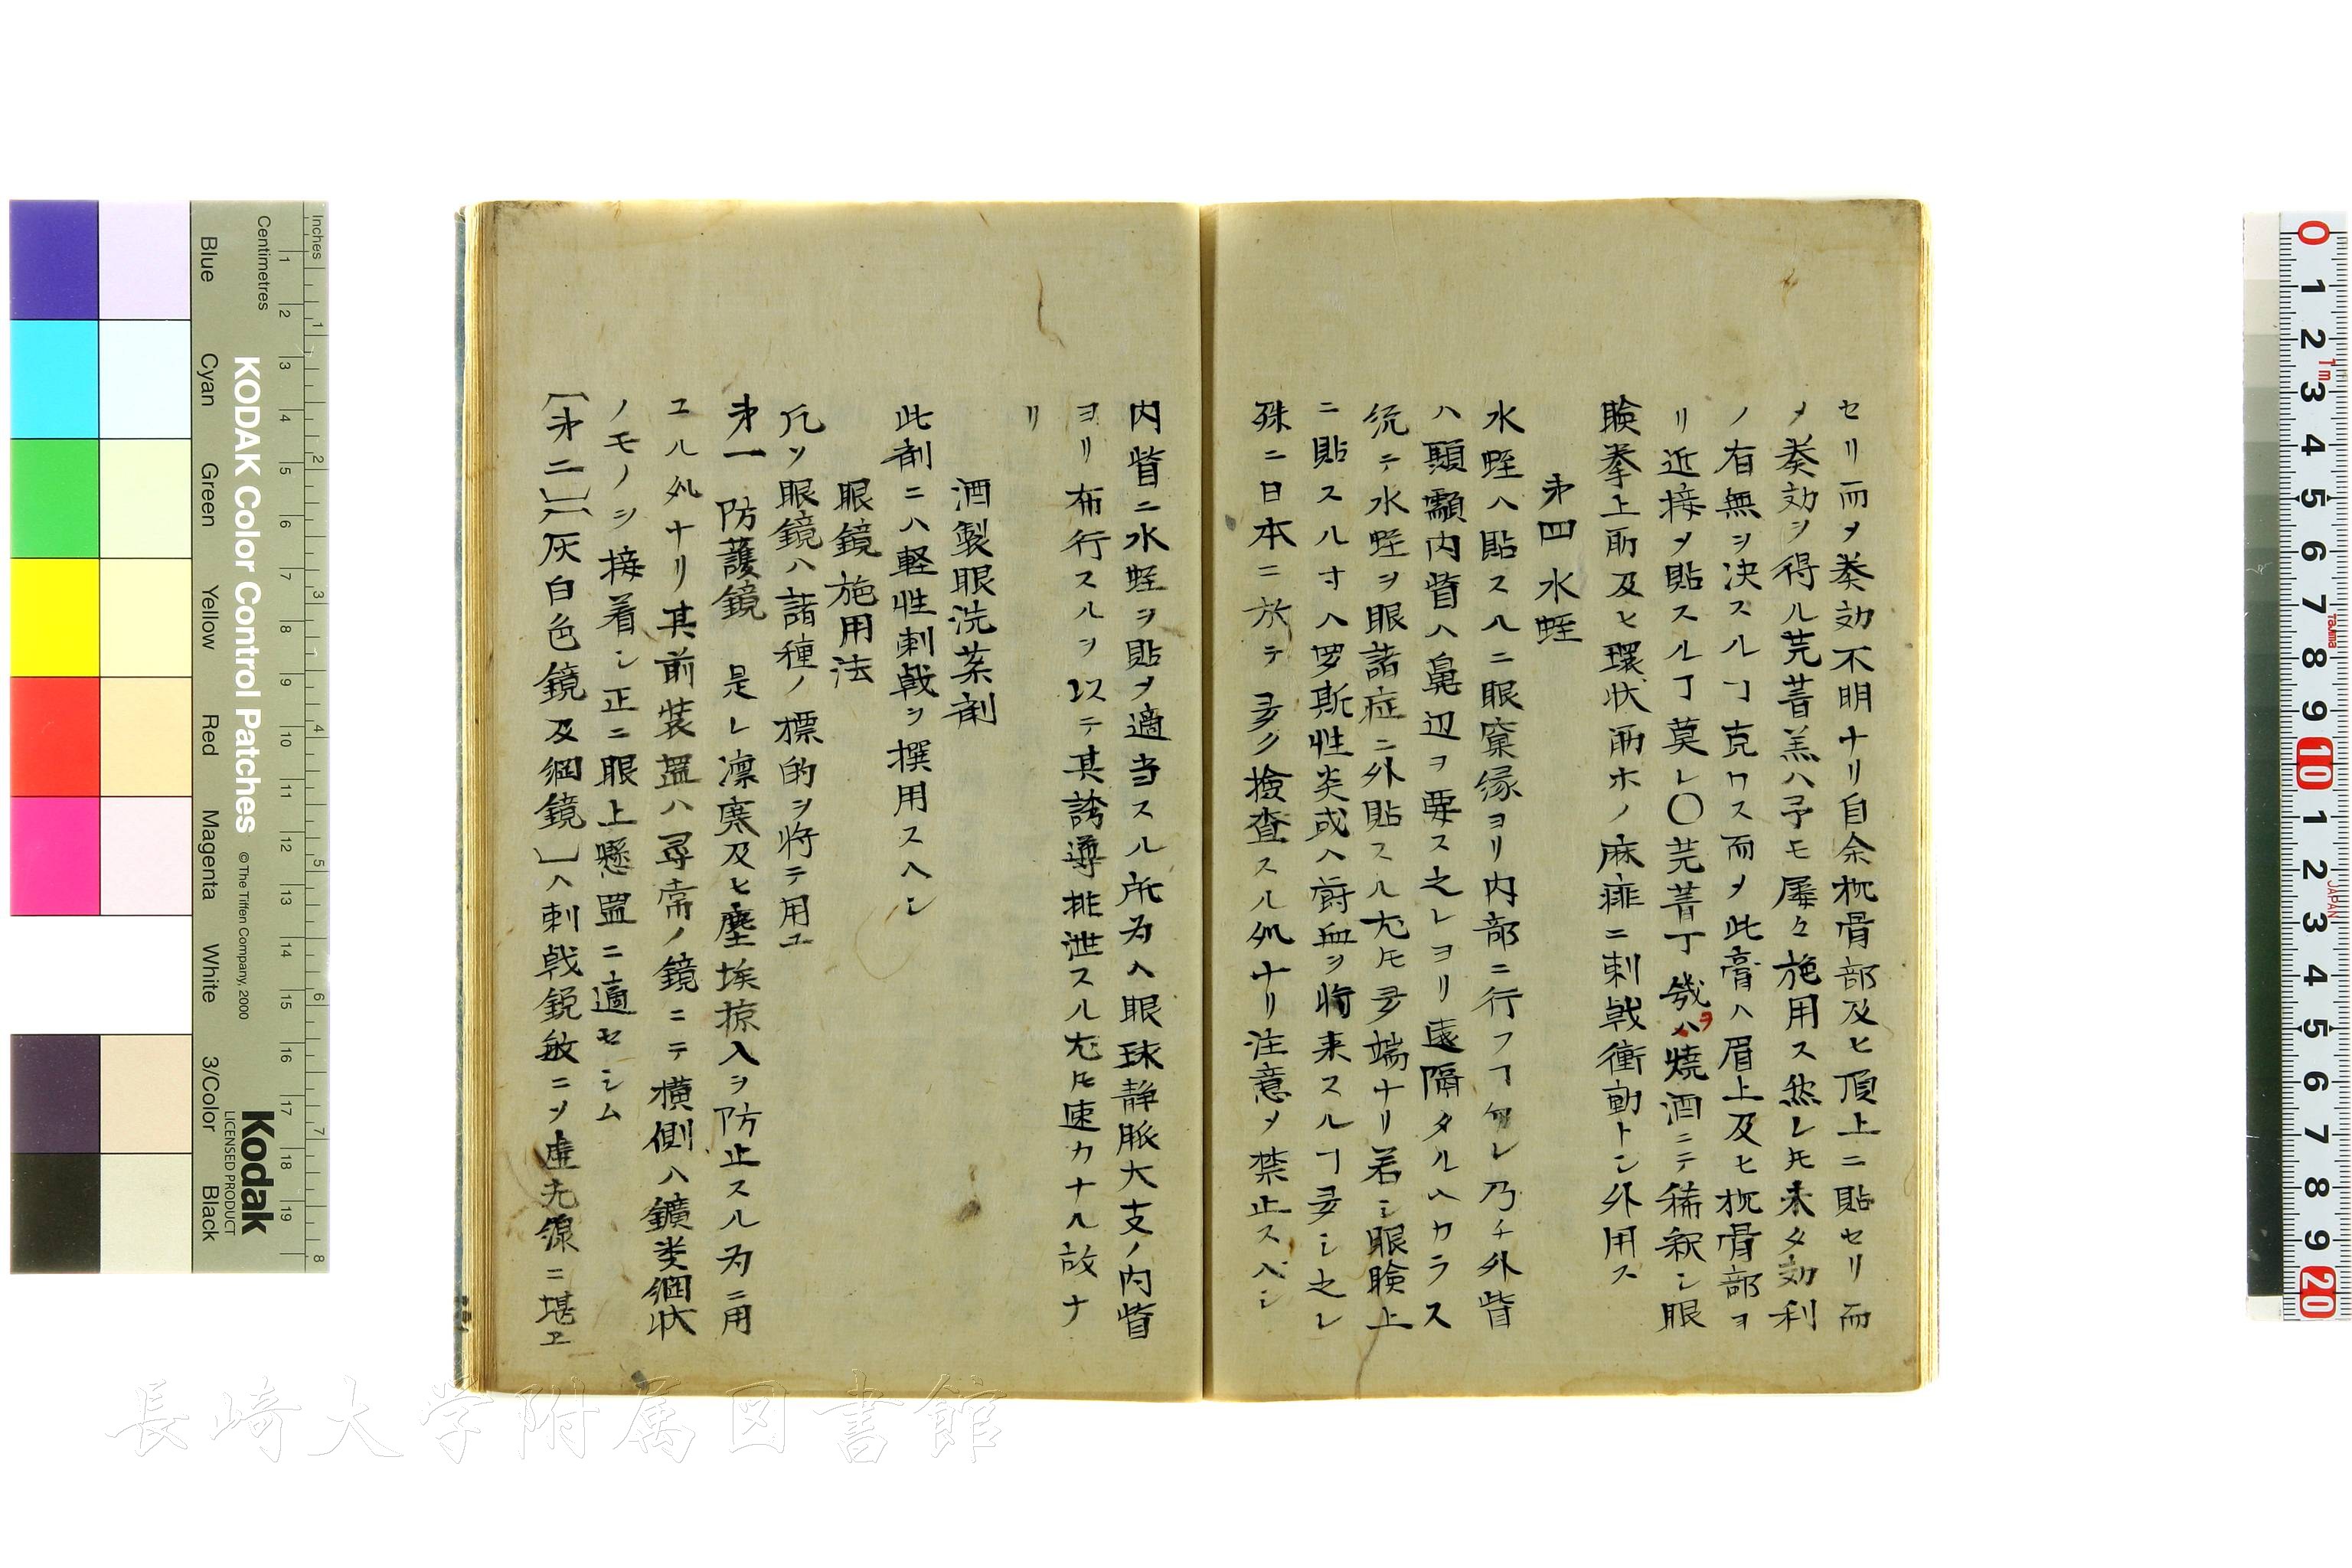 セリ而メ奏効不明ナリ自余枕骨部及ヒ頂上ニ貼セリ而
メ奏効ヲ得ル芫菁羔ハ予モ屡々施用ス然レ𪜈未タ効利
ノ有無ヲ决スルヿ克ワス而メ此膏ハ眉上及ヒ枕骨部ヲ
リ近接メ貼スルヿ莫レ〇芫菁丁幾ハヲ焼酒ニテ稀釈シ眼
瞼拳上肋及ヒ環状肋ホノ麻痺ニ刺戟衝動トシ外用ス
第四 水蛭
水蛭ハ貼スルニ眼窠縁ヨリ内部ニ行フヿ勿レ乃チ外眥
ハ顳顬内眥ハ鼻辺ヲ要ス之レヨリ遠隔タルヘカラス
統テ水蛭ヲ眼諸症ニ外貼スル尤𪜈多端ナリ若シ眼瞼上
ニ貼スル寸ハ罗斯性炎或ハ欝血ヲ将来スルヿ多シ之レ
殊ニ日本ニ於テ多ク撿査スル処ナリ注意メ禁止スヘシ
内眥ニ水蛭ヲ貼メ適当スル所為ハ眼球静脈大支ノ内眥
ヨリ布行スルヲ以テ其誘導排泄スル尤𪜈速カナル故ナ
リ
酒製眼洗茶剤
此剤ニハ軽性刺戟ヲ撰用スヘシ
眼鏡施用法
凡ソ眼鏡ハ諸種ノ標的ヲ将テ用ユ
第一 防護鏡 是レ凛寒及ヒ塵埃掠入ヲ防止スル為ニ用
ユル処ナリ其前装置ハ尋常ノ鏡ニテ横側ハ鑛类網状
ノモノヲ接着シ正ニ眼上懸置ニ適セシム
〔第二〕〔灰白色鏡及網鏡〕ハ刺戟鋭敏ニソ虚光線ニ堪エ
Blue
Cyan
Green
Yellow
Red
Magenta
White
3/Color
Black
Centimetres
Inches
1 2 3 4 5 6 7 8 9 10 11 12 13 14 15 16 17 18 19
1 2 3 4 5 6 7 8
KODAK Color Control Patches
©The Tiffen Company, 2000
Kodak
LICENSED PRODUCT
0 1 2 3 4 5 6 7 8 9 10 1 2 3 4 5 6 7 8 9 20
1m
Tajima
JAPAN
長崎大学附属図書館